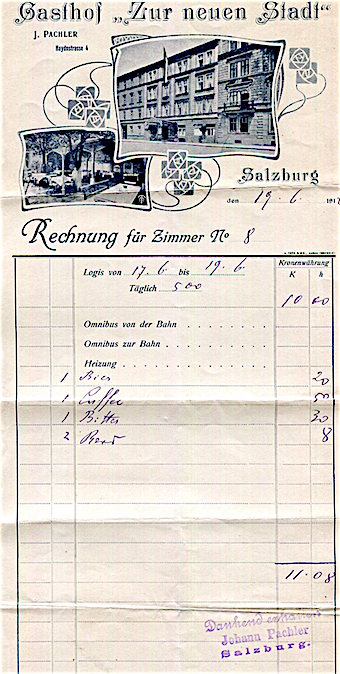 Gasthof „Zur neuen Stadt“
J. PACHLER
Haydnstrasse 4
Salzburg
den 19. 6. 191
Rechnung für Zimmer No 8
Logis von 17. 6 bis 19. 6
Kronenwährung
Täglich 500
K h
10 00
Omnibus von der Bahn
Omnibus zur Bahn
Heizung
1 Bier 20
1 Caffee 50
1 30
2 8
11.08
Dankend erhalten
Johann Pachler
Salzburg.